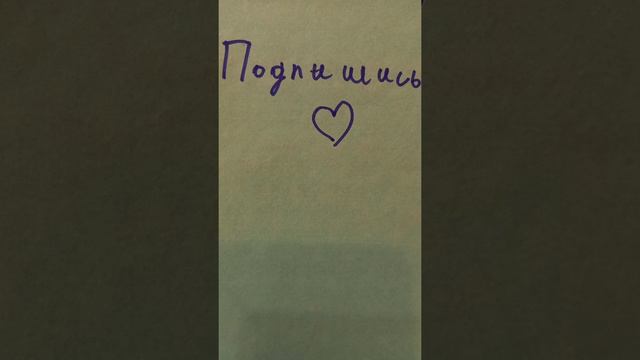 Подпишись